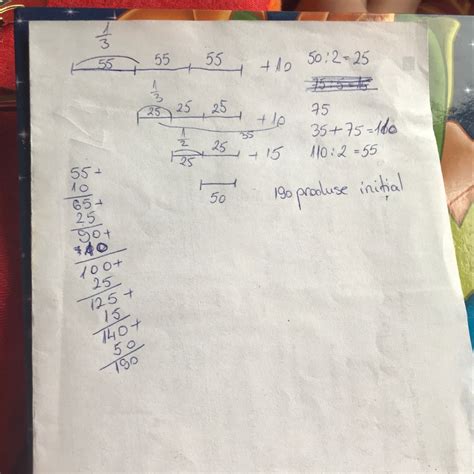 1/3
55 55 55 +10 50:2=25
1/3
25 25 25 +10 75
35 35+75=110
1/2
25 25 +15 110:2=55
50 190 produse initial
55+
10
65+
25
90+
10
100+
25
125+
15
140+
50
190